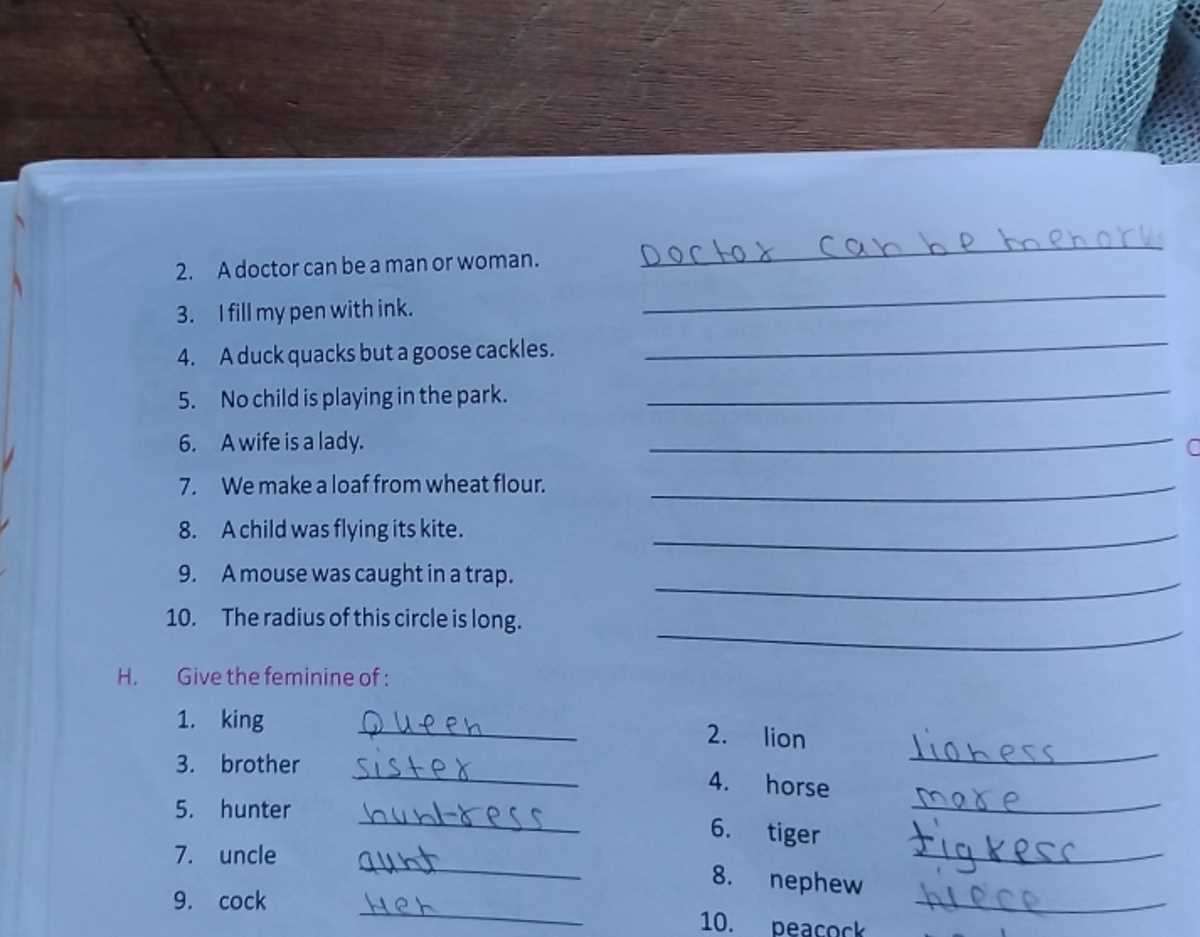 2. A doctor can be a man or woman. Doctor can be men or
3. I fill my pen with ink.
4. A duck quacks but a goose cackles.
5. No child is playing in the park.
6. A wife is a lady.
7. We make a loaf from wheat flour.
8. A child was flying its kite.
9. A mouse was caught in a trap.
10. The radius of this circle is long.
H. Give the feminine of :
1. king Queen 2. lion lioness
3. brother sister 4. horse mare
5. hunter huntress 6. tiger tigress
7. uncle aunt 8. nephew niece
9. cock Hen 10. peacock